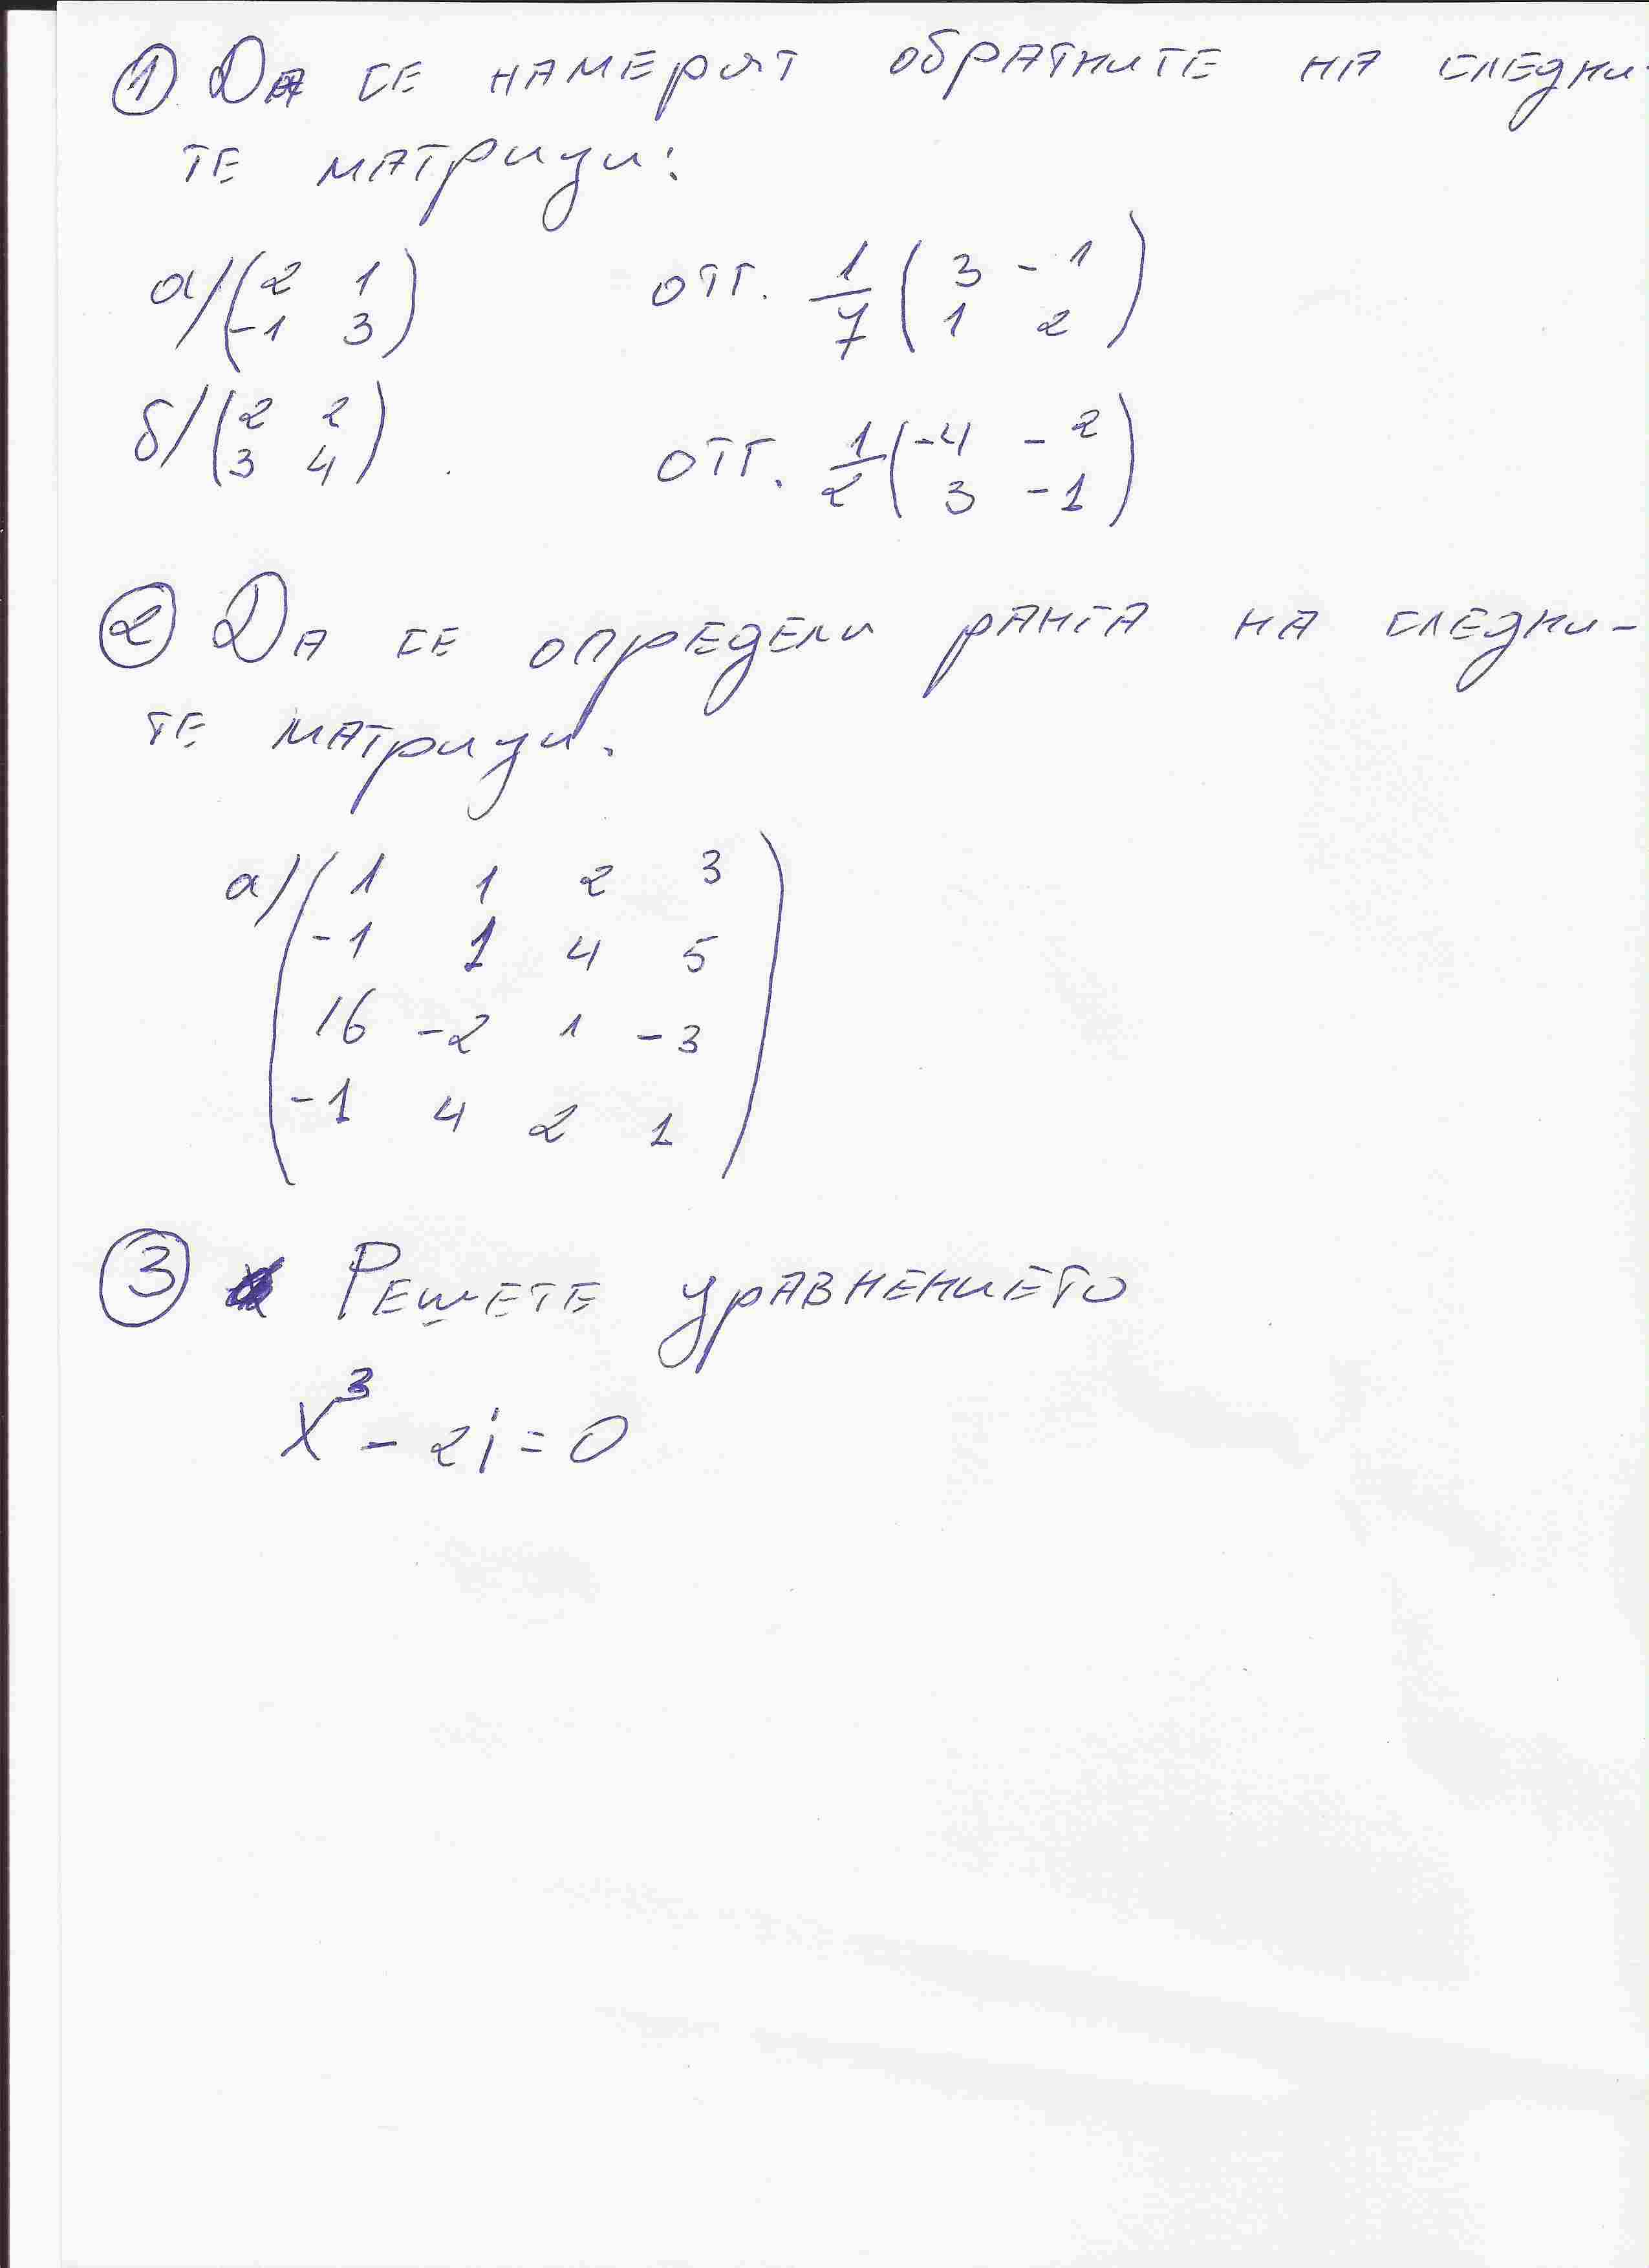 ① Да се намерят обратните на следни-
те матрици:
а/ (2 1
-1 3) отг. 1/7 (3 -1
1 2)
б/ (2 2
3 4) . отг. 1/2 (-4 -2
3 -1)
② Да се определи ранга на следни-
те матрици.
а/ (1 1 2 3
-1 1 4 5
16 -2 1 -3
-1 4 2 1)
③ Решете уравнението
x³ - 2i = 0